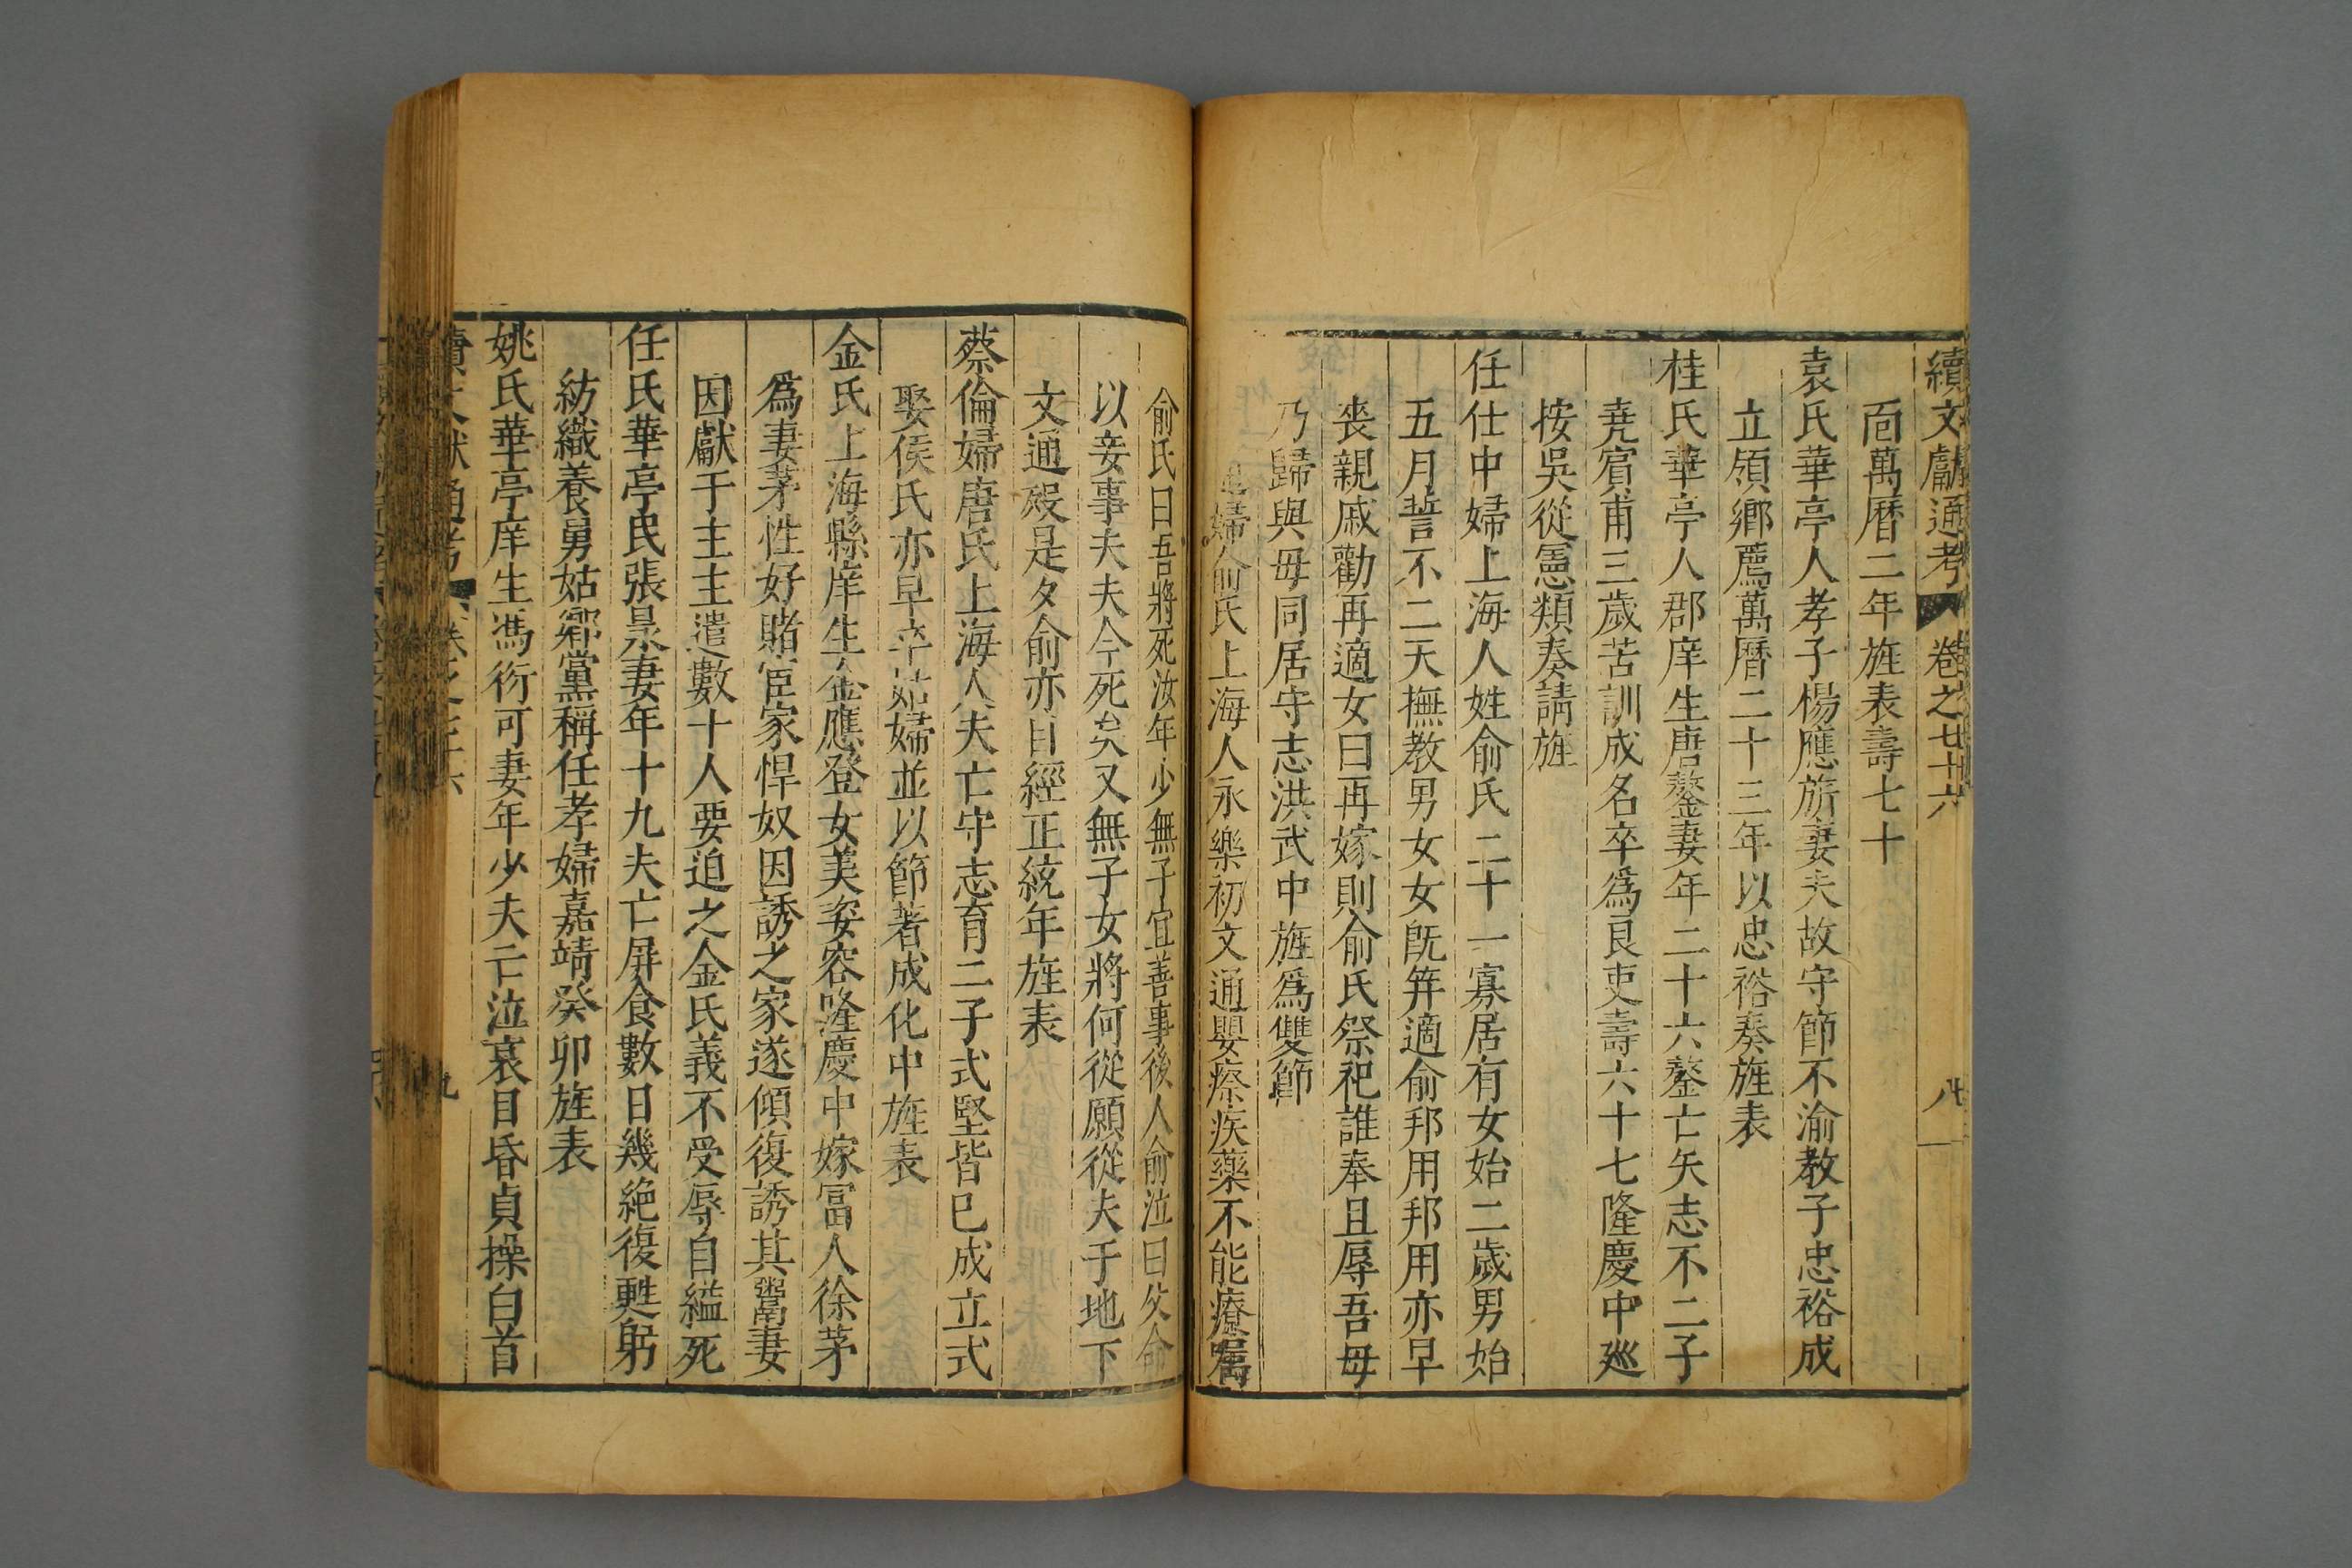 續文獻通考 卷之七十六 八
百萬曆二年旌表壽七十
袁氏華亭人孝子楊應旂妻夫故守節不渝教子忠裕成
立領鄉薦萬曆二十三年以忠裕奏旌表
桂氏華亭人郡庠生唐鏊妻年二十六鏊亡矢志不二子
堯賓甫三歲苦訓成名卒爲良吏壽六十七隆慶中巡
按吳從憲類奏請旌
任仕中婦上海人姓俞氏二十一寡居有女始二歲男始
五月誓不二天撫教男女女旣笄適俞邦用邦用亦早
喪親戚勸再適女曰再嫁則俞氏祭祀誰奉且辱吾母
乃歸與母同居守志洪武中旌爲雙節
婦俞氏上海人永樂初文通嬰瘵疾藥不能療屬
俞氏曰吾將死汝年少無子宜善事後人俞泣曰父命
以妾事夫夫今死矣又無子女將何從願從夫于地下
文通殁是夕俞亦自經正統年旌表
蔡倫婦唐氏上海人夫亡守志育二子式堅皆已成立式
娶侯氏亦早卒姑婦並以節著成化中旌表
金氏上海縣庠生金應登女美姿容隆慶中嫁冨人徐茅
爲妻茅性好賭宦家悍奴因誘之家遂傾復誘其鬻妻
因獻于主主遣數十人要迫之金氏義不受辱自縊死
任氏華亭民張景妻年十九夫亡屏食數日幾絶復甦躬
紡織養舅姑鄉黨稱任孝婦嘉靖癸卯旌表
姚氏華亭庠生馮衍可妻年少夫亡泣哀目昏貞操白首
續文獻通考 卷之七十六 九